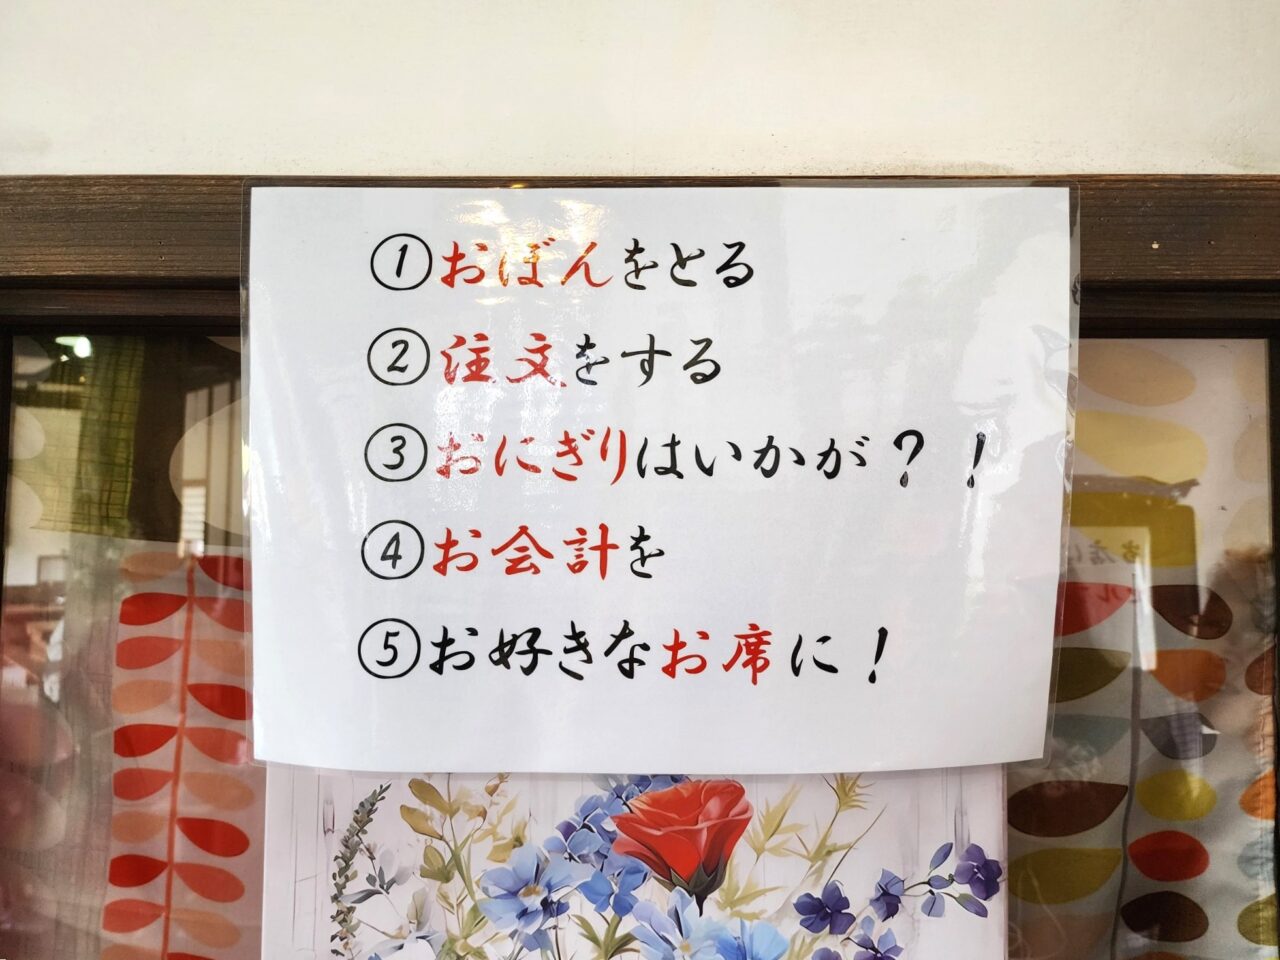 ①おぼんをとる
②注文をする
③おにぎりはいかが？！
④お会計を
⑤お好きなお席に！